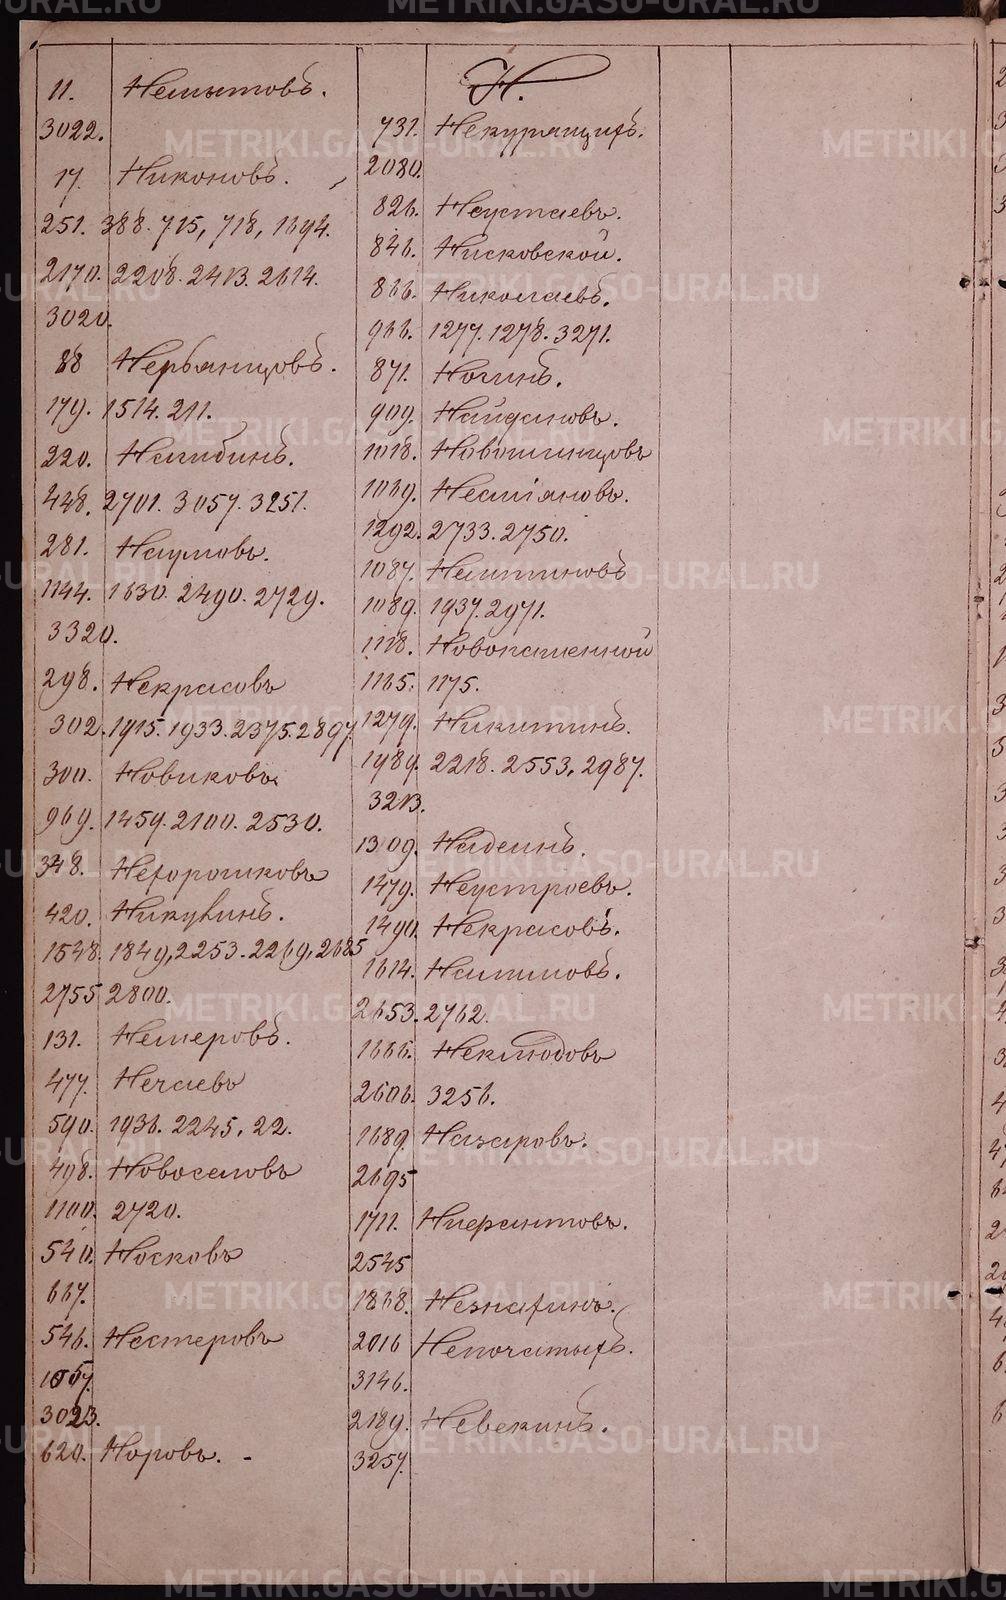 11. Немытовъ.
3022.
17. Никоновъ.
251. 388. 715, 718, 1694.
2170. 2208. 2413. 2614.
3020.
88 Нербянцовъ.
179. 1514. 211.
220. Нагибинъ.
448. 2701. 3057. 3251.
281. Наумовъ.
1144. 1630. 2490. 2729.
3320.
298. Некрасовъ
302. 1915. 1933. 2375. 2897.
300. Новиковъ
969. 1459. 2100. 2530.
348. Нехорошковъ
420. Никулинъ.
1548. 1849, 2253. 2269, 2685
2755 2800.
131. Немеровъ.
477. Нечаевъ
590. 1936. 2245. 22.
498. Новоселовъ
1100. 2720.
540. Носковъ
667.
546. Нестеровъ
1057.
3023.
620. Норовъ.
Н.
731. Некурящихъ.
2080.
826. Неустаевъ.
846. Нисковской.
866. Николаевъ.
966. 1277. 1278. 3271.
871. Ногинъ.
909. Найдановъ.
1018. Новошинцовъ
1069. Несміяновъ.
1292. 2733. 2750.
1087.
1089. 1937. 2971.
1118. Новопашенной
1165. 1175.
1279. Никитинъ.
1989. 2218. 2553. 2987.
3213.
1309. Надеинъ.
1479. Неустроевъ.
1490. Некрасовъ.
1614. Налимовъ.
2653. 2762.
1666. Неклюдовъ
2606. 3256.
1689. Назаровъ.
2695
1711.
2545
1868. Незнахинъ.
2016 Непочатыхъ.
3146.
2189. Невекинъ.
3257.
METRIKI.GASO-URAL.RU